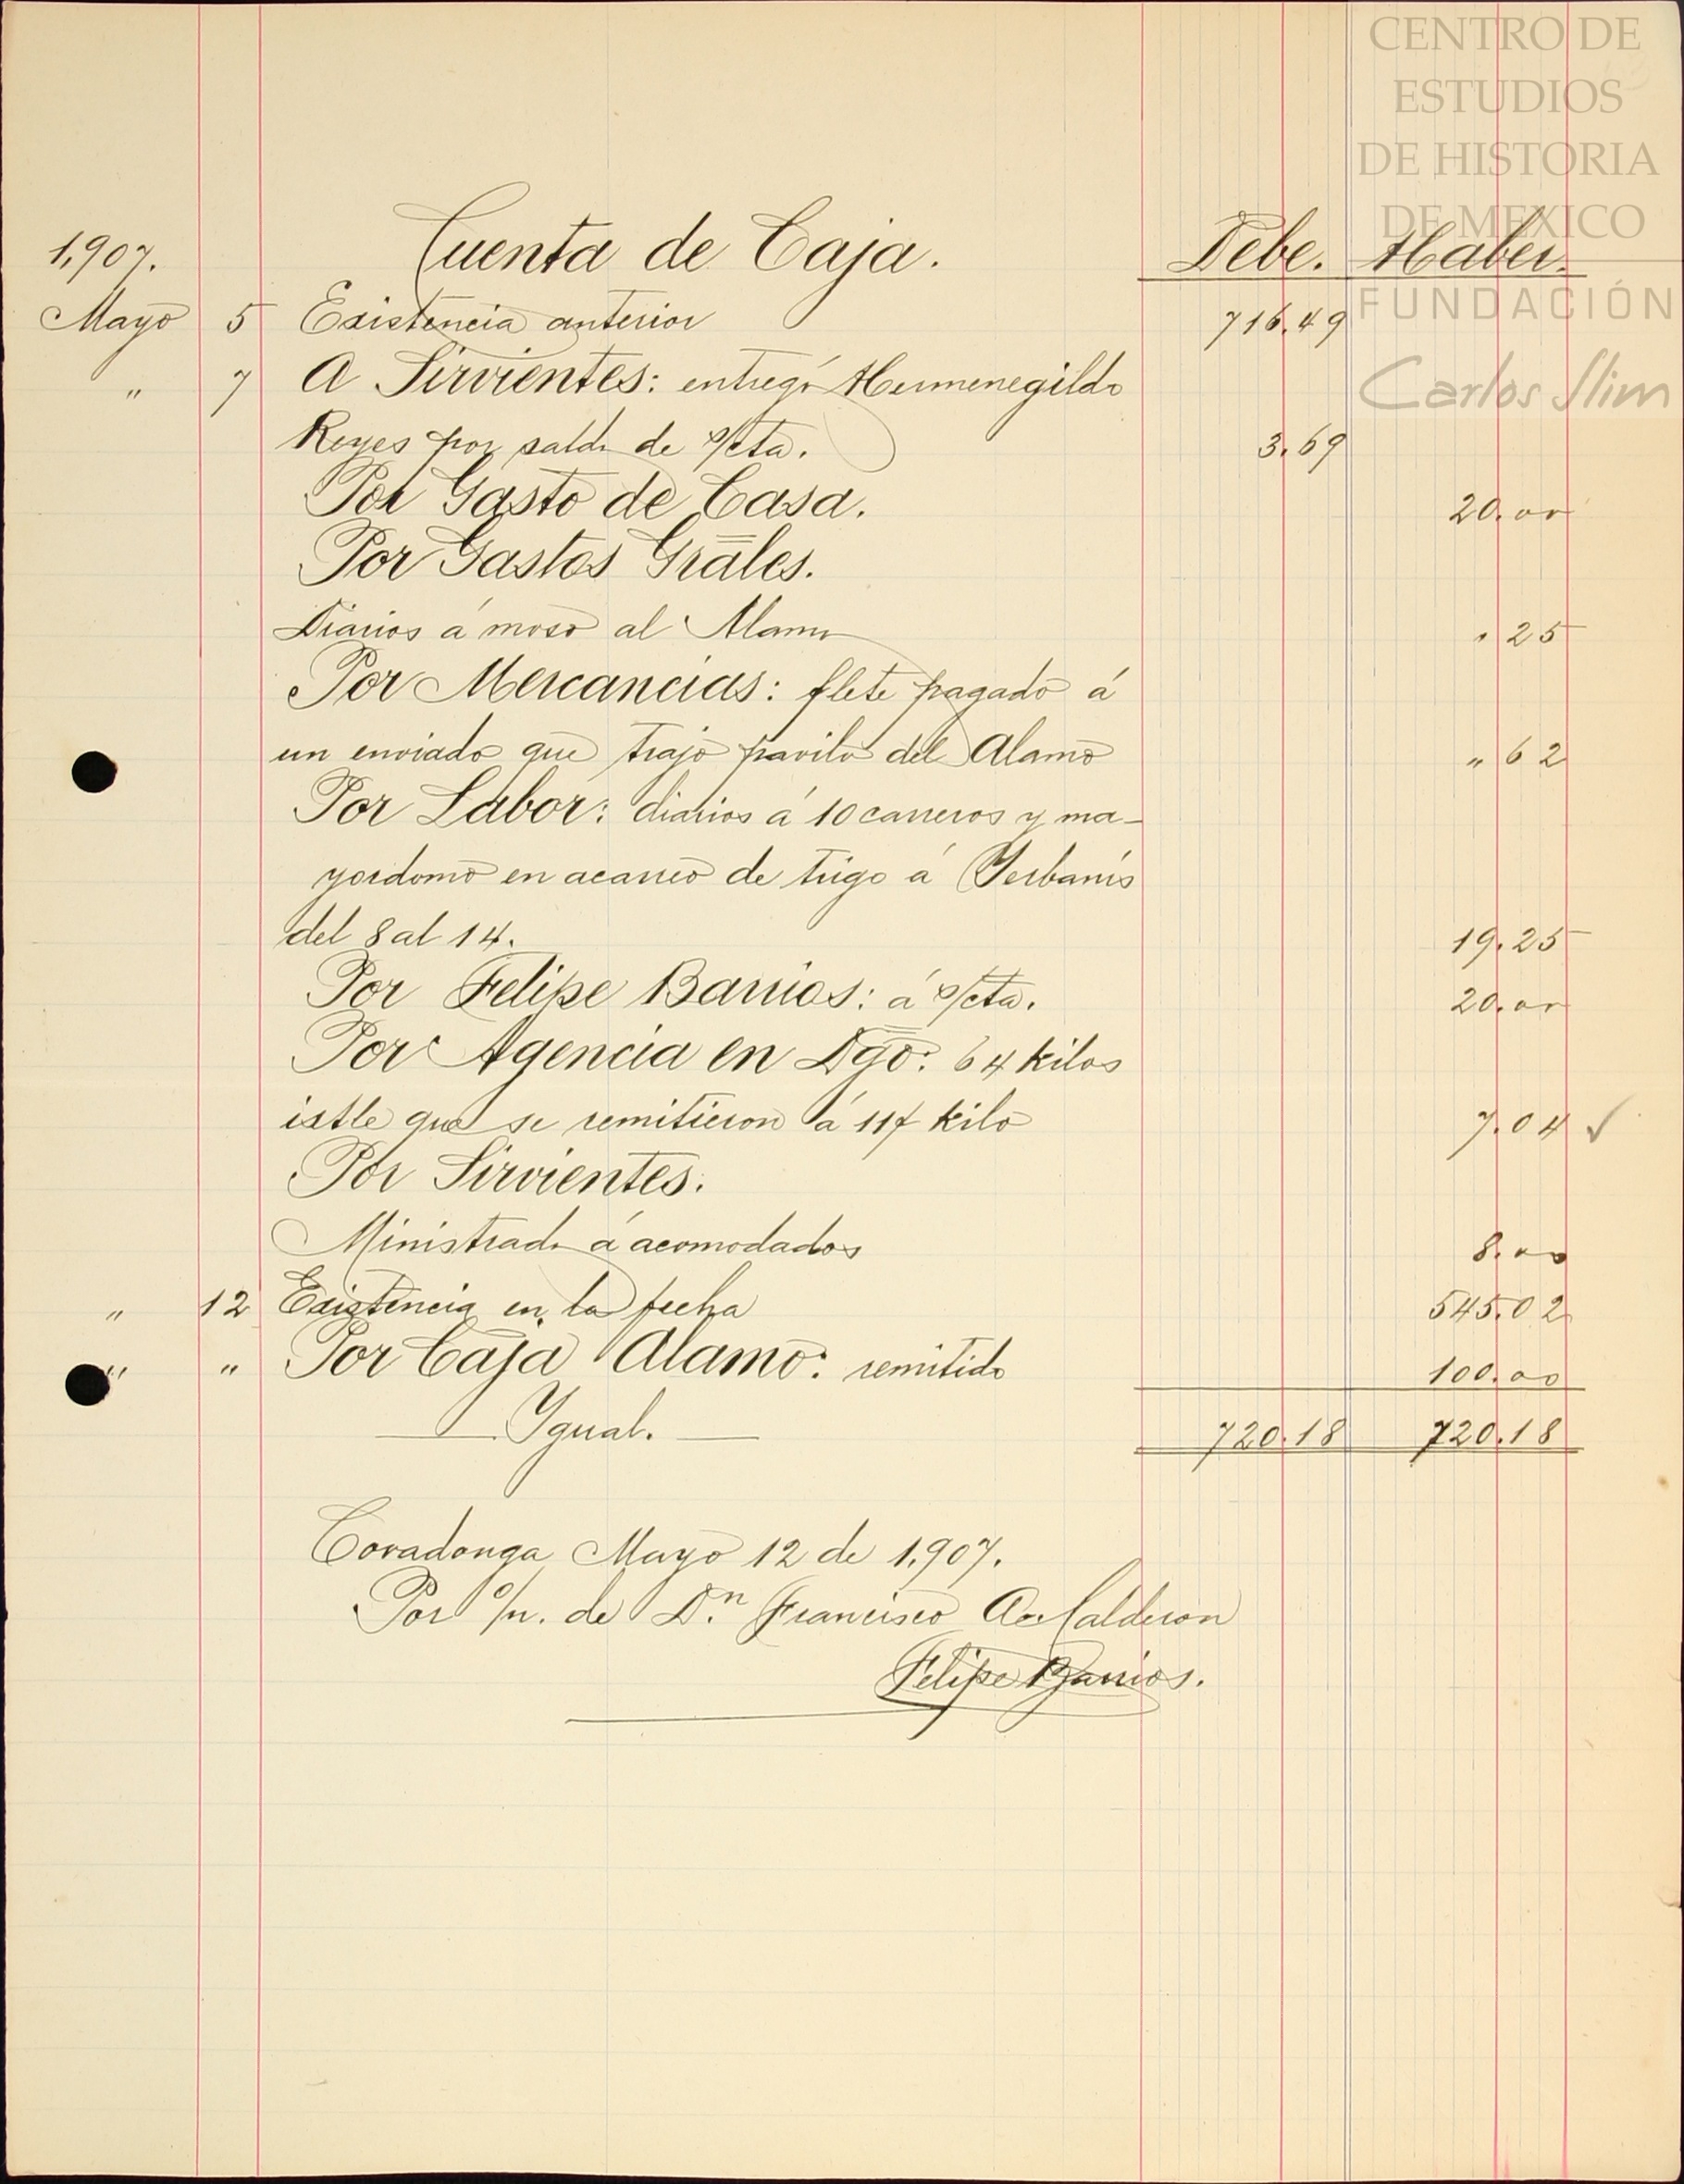 CENTRO DE
ESTUDIOS
DE HISTORIA
DE MEXICO
FUNDACIÓN
Carlos Slim
1,907. Cuenta de Caja. Debe. Haber.
Mayo 5 Existencia anterior 716.49
" 7 A Sirvientes: entregó Hermenegildo
Reyes por saldo de s/cta. 3.69
Por Gasto de Casa. 20.00
Por Gastos Grales.
Diarios á moso al Alamo " 25
Por Mercancias: flete pagado á
un enviado que trajo pavilo del Alamo " 62
Por Labor: diarios á 10 carreros y ma-
yordomo en acarreo de trigo á Yerbanís
del 8 al 14. 19.25
Por Felipe Barrios: á s/cta. 20.00
Por Agencia en Dgo: 64 kilos
istle que se remitieron á 11¢ kilo 7.04 ✓
Por Sirvientes.
Ministrado á acomodados 8.00
" 12 Existencia en la fecha 545.02
" " Por Caja Alamo: remitido 100.00
Ygual. 720.18 720.18
Covadonga Mayo 12 de 1,907.
Por o/n. de Dn. Francisco A. Calderon
Felipe Barrios.